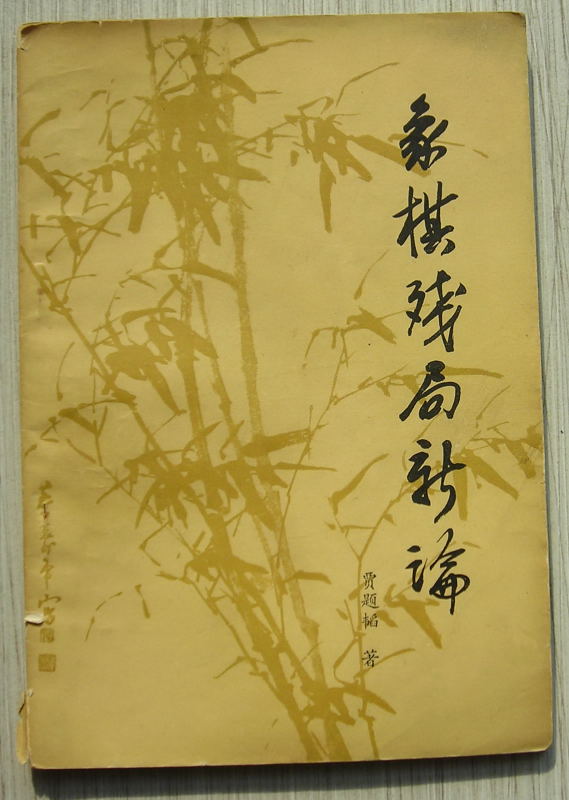 象棋残局新論
贾题韬 著